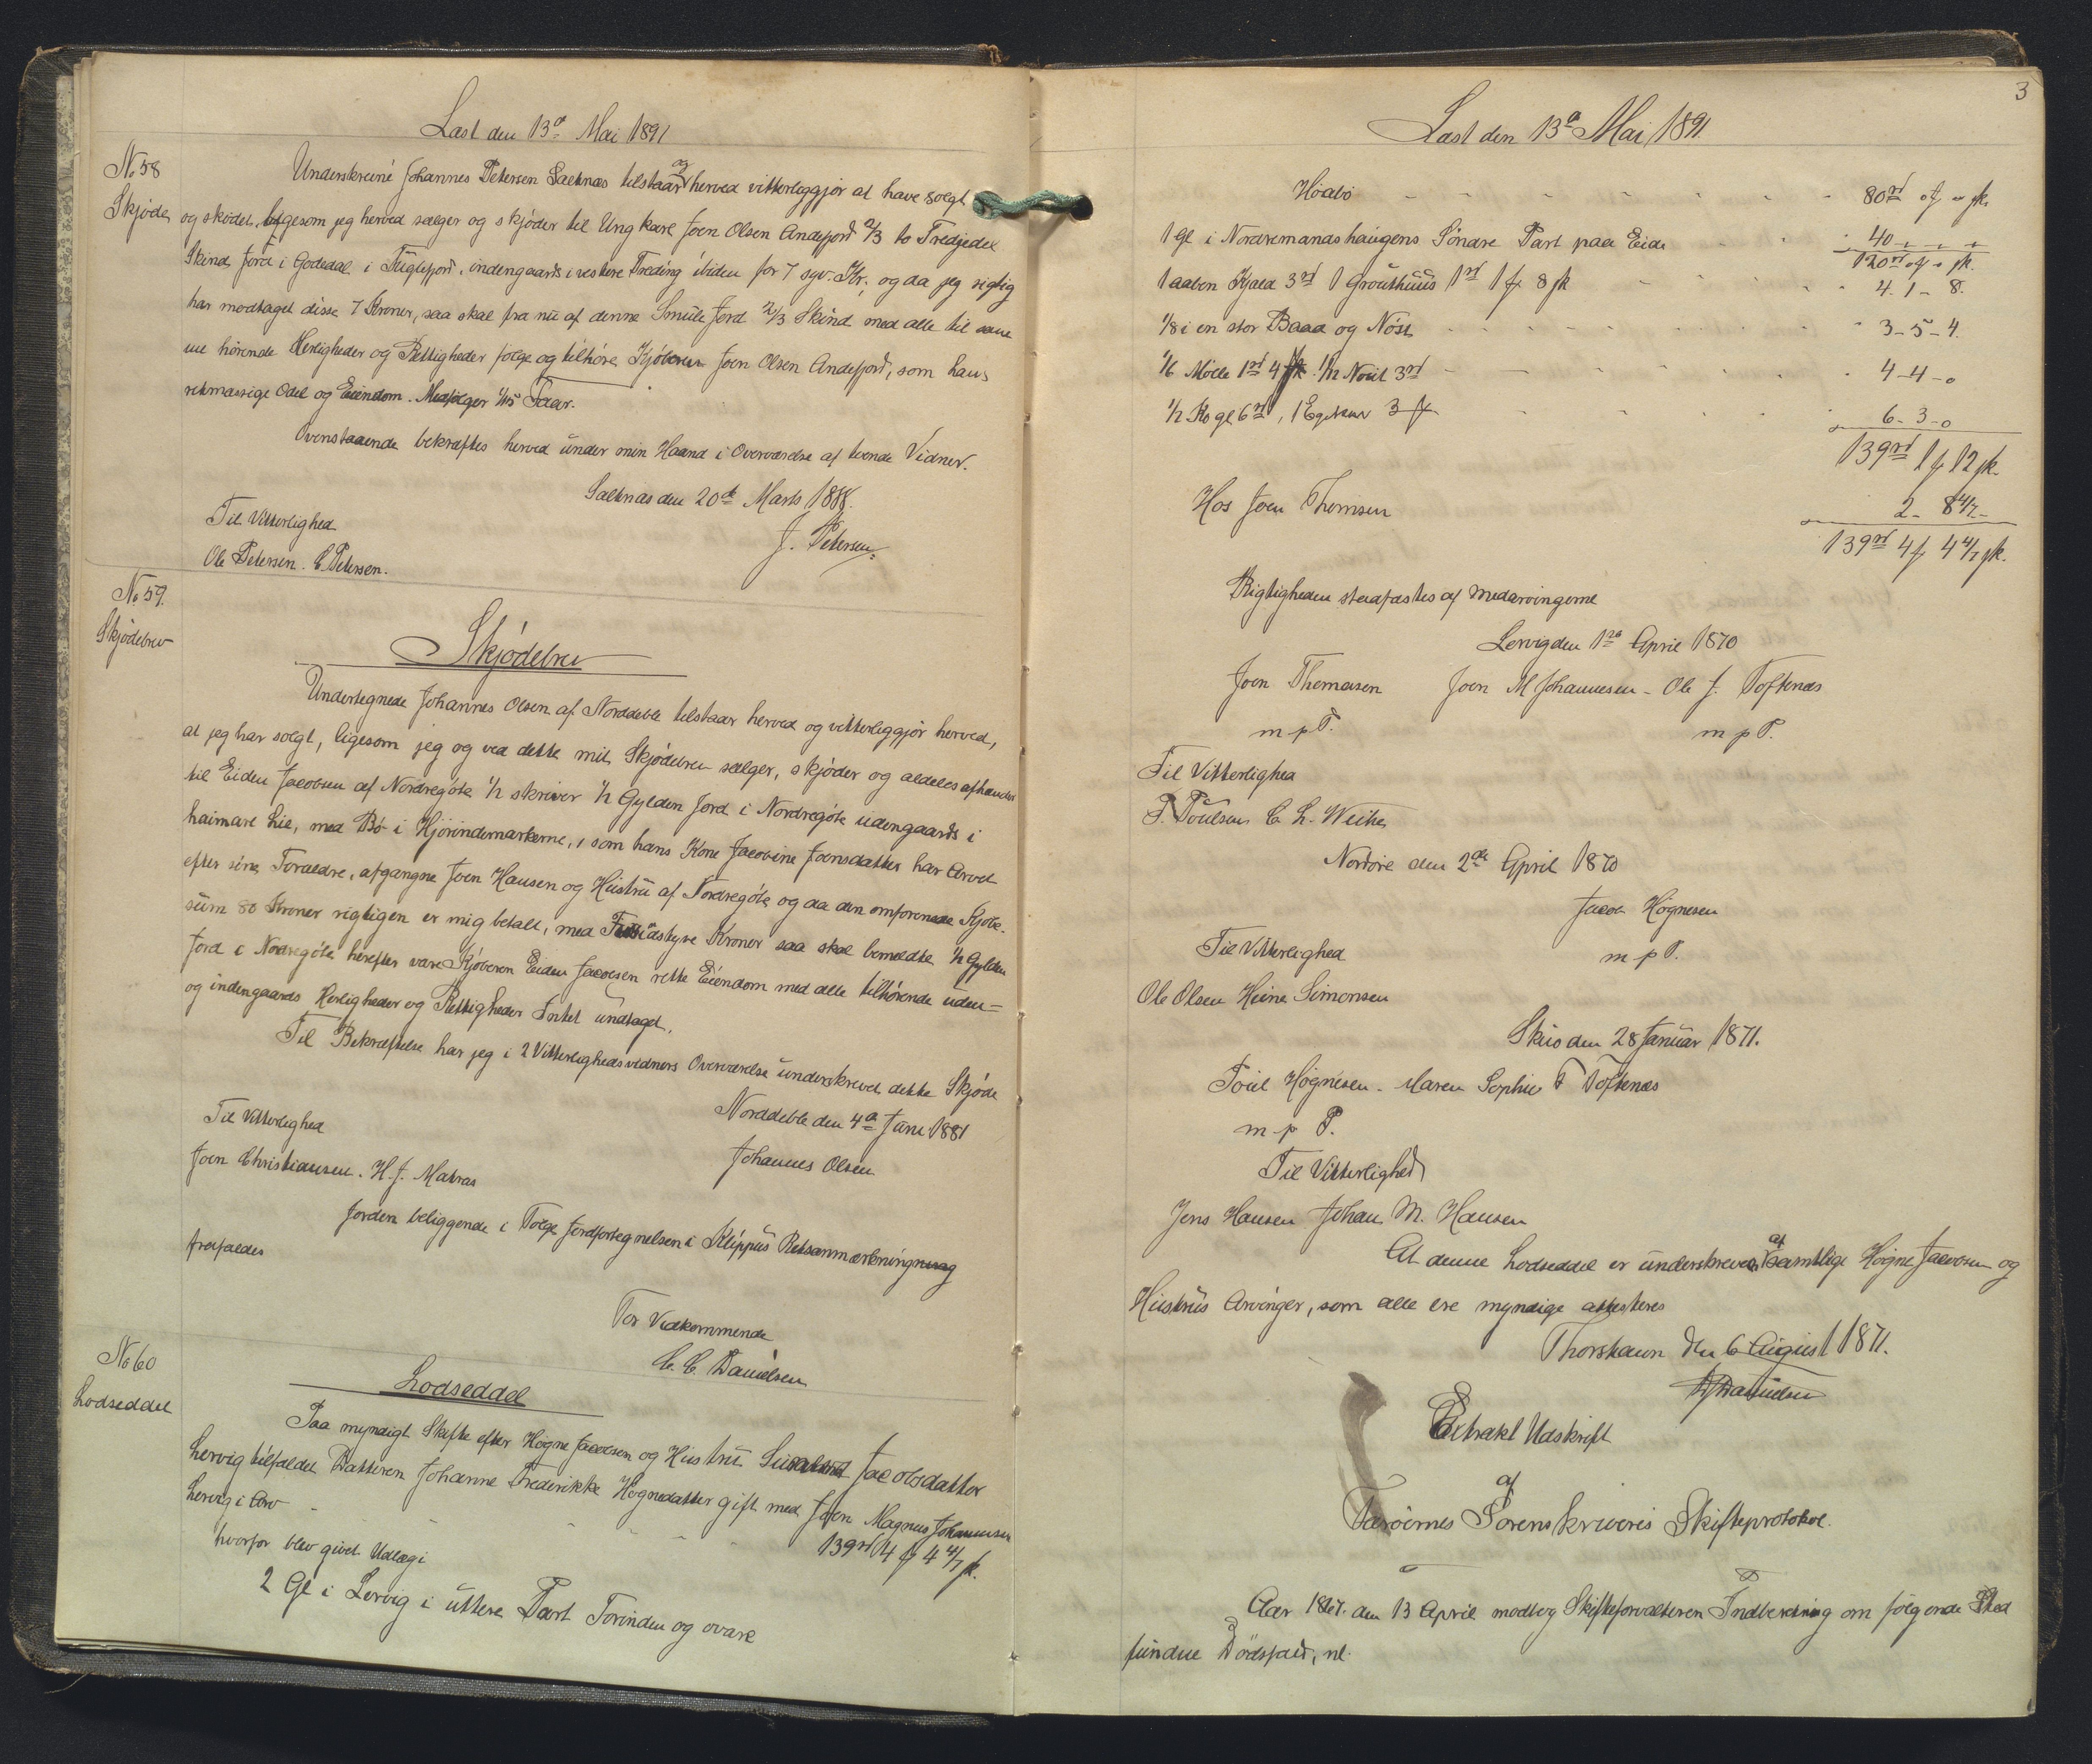 Læst den 13d Mai 1891
No 58
Skjøde
Underskrevne Johannes Petersen Saltnæs tilstaar og herved vitterliggjør at have solgt
og skødet, ligesom jeg herved sælger og skjøder til Ungkarl Joen Olsen Andefjord 2/3 to Tredjedel
Skind Jord i Godedal i Fuglefjord, indengaards i vestere Treding ibiden for 7 syv Kr. og da jeg rigtig
har modtaget disse 7 Kroner, saa skal fra nu af denne Smule Jord 2/3 Skind med alle til samme
hørende Herligheder og Rettigheder følge og tilhøre Kjøberen Joen Olsen Andefjord, som hans
retmæssige Odel og Eiendom. Medfølger 1/15 Faar.
Ovenstaaende bekræftes herved under min Haand i Overværelse af tvende Vidner.
Saltnæs den 20de Marts 1888.
J. Petersen
Til Vitterlighed
Ole Petersen. C. Petersen.
No 59.
Skjødebrev
Skjødebrev
Undertegnede Johannes Olsen af Norddeble tilstaar herved og vitterliggjør herved,
at jeg har solgt, ligesom jeg og ved dette mit Skjødebrev sælger, skjøder og aldeles afhænder
til Eiden Jacobsen af Nordregøte 1/2 skriver 1/2 Gylden Jord i Nordregøte udengaards i
haimare Lie, med Bø i Hjørindemarkerne, som hans Kone Jacobine Joensdatter har Arvet
efter sine Forældre, afgangne Joen Hansen og Hustru af Nordregøte og da den omforenede Kjøbe-
sum 80 Kroner rigtigen er mig betalt, med Firsindstyve Kroner saa skal bemeldte 1/2 Gylden
Jord i Nordregøte herefter være Kjøberen Eiden Jacobsen rette Eiendom med alle tilhørende uden-
og indengaards Herligheder og Rettigheder Intet undtaget.
Til Bekræftelse har jeg i 2 Vitterlighedsvidners Overværelse underskrevet dette Skjøde
Norddeble den 4d Juni 1881
Johannes Olsen
Til Vitterlighed
Joen Christiansen. H. J. Matras
Jorden beliggende i Følge Jordfortegnelsen i Klippus Retsanmærkning
frafaldes
For Vedkommende
C. C. Danielsen
No 60
Lodseddel
Lodseddel
Paa myndigt Skifte efter Høgne Jacobsen og Hustru Jacobsdatter
Lervig tilfaldet Datteren Johanne Frederikke Høgnedatter gift med Joen Magnus Johannesen
Lervig i Arv - 139rd 4 f 4 4/7 sk.
hvorfor blev givet Udlæg i
2 Gl i Lervig i uttere Part Forinden og ovare
3
Læst den 13d Mai 1891
Høabø - 80rd " f " sk.
1 gl i Nordremandshaugens Søndre Part paa Eide - 40 " "
120rd " f " sk.
1 aaben Hjald 3rd 1 Grouthuus 1rd 1 f 8 sk - 4 - 1 - 8.
1/8 i en stor Baad og Nøst - 3 - 5 - 4.
1/6 Mølle 1rd 4 f 1/12 Nout 3rd - 4 - 4 - 0
1/2 Ko gl 6rd, 1 3 f - 6 - 3 - 0
139rd 1 f 12 sk.
Hos Joen Thomsen 2 - 8 4/7 -
139rd 4 f 4 4/7 sk.
Rigtigheden stadfæstes af Medarvingerne
Lervig den 1ste April 1870
Joen Thomasen Joen M Johannesen - Ole J. Toftenæs
m p P. m p P.
Til Vitterlighed
P. Poulsen C. L. Weihe
Nordøre den 2den April 1870
Jacob Høgnesen
m p P.
Til Vitterlighed
Ole Olsen Heine Simonsen
Skuo den 28 Januar 1871.
Poul Høgnesen - Maren Sophie F Toftenæs
m p P.
Til Vitterlighed
Jens Hansen Johan M. Hansen
At denne Lodseddel er underskreven af samtlige Høgne Jacobsen og
Hustrus Arvinger, som alle ere myndige attesteres
Thorshavn den 6 August 1871.
Danielsen
Extrakt Udskrift
af
Færøernes Sorenskriveris Skifteprotokol.
Aar 1867. den 13 April modtog Skifteforvalteren Indberetning om følgende Sted
fundne Dødsfald, nl.